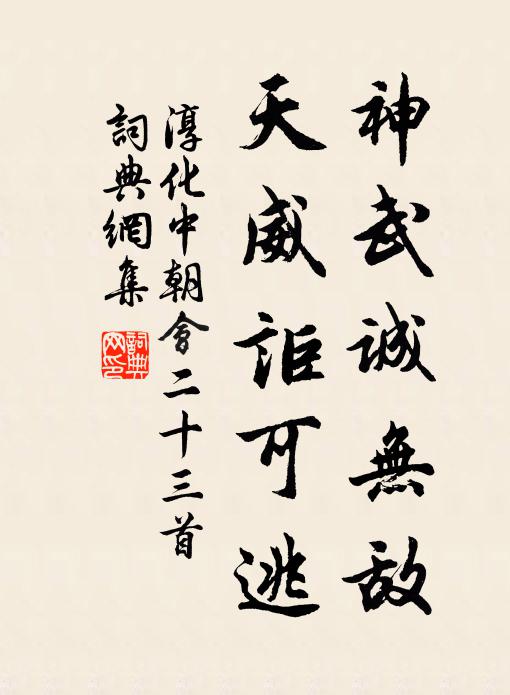 神武誠無敵
天威詎可逃
淳化中朝會二十三首
詞典網集
詞典网印